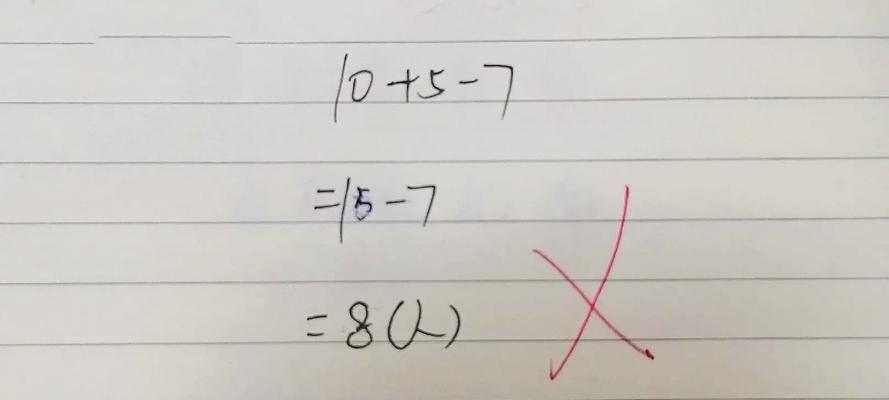 10+5-7
=15-7
=8(人)